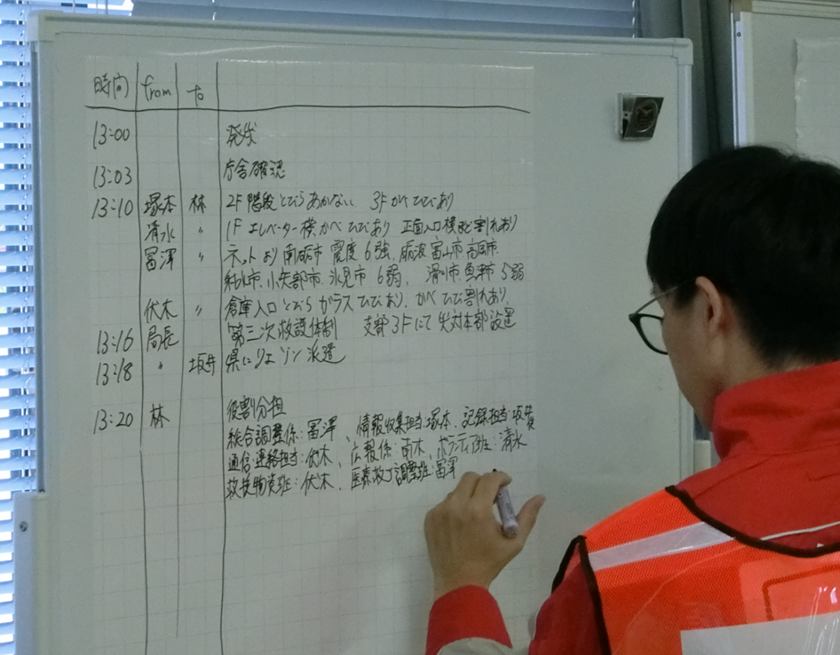 時間 from to
13:00 発災
13:03 庁舎確認
13:10 塚本 林 2F階段とびらあかない 3Fかべひびあり
清水 〃 1Fエレベーター横かべひびあり 正面入口横ひび割れあり
冨澤 〃 ネットより南砺市震度6強、砺波、富山市、高岡市、
射水市、小矢部市、氷見市6弱、滑川市、魚津市5弱
伏木 〃 倉庫入口とびらガラスひびあり、かべひび割れあり、
13:16 局長 第三次救護体制 支部3Fにて災対本部設置
13:18 〃 坂井 県にリエゾン派遣
13:20 林 役割分担
総合調整係:冨澤、情報収集担当:塚本、記録担当:
通信・連絡担当:伏木、広報係:南木、ボランティア班:清水
救援物資班:伏木、医療救護調整班:冨澤